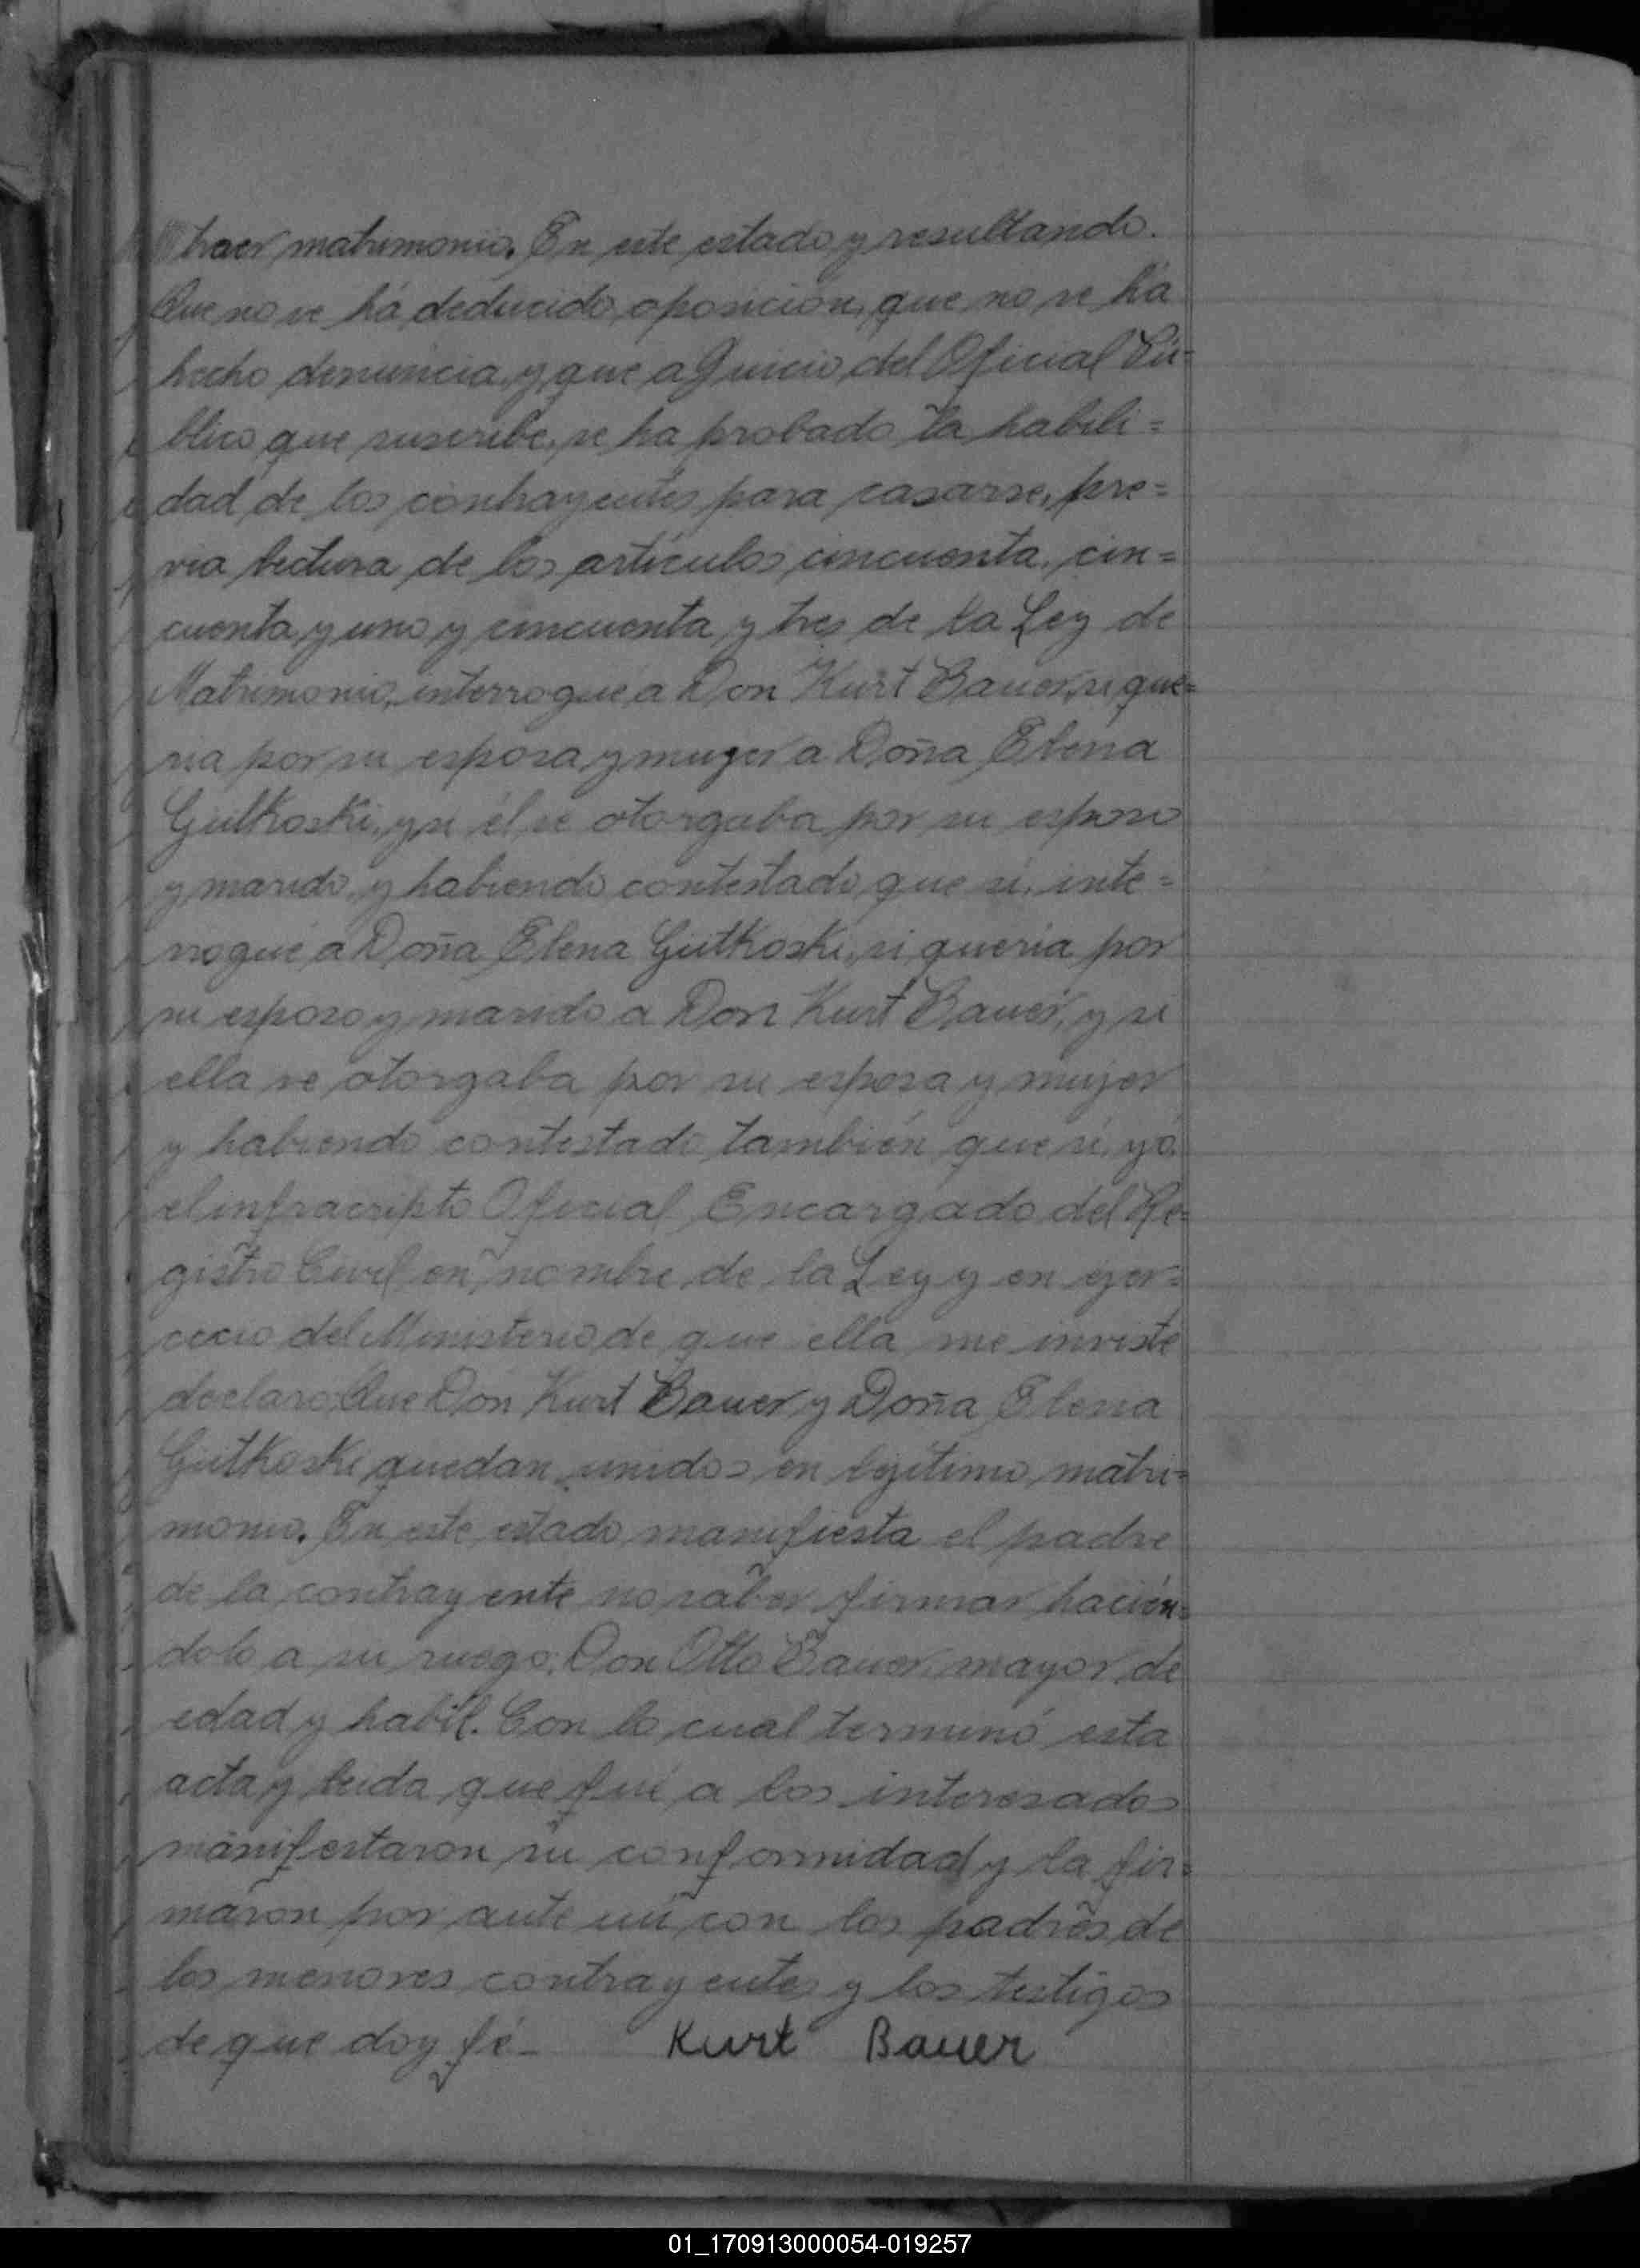 traer matrimonio. En este estado y resultando.
Que no se há deducido oposición, que no se há
hecho denuncia, y que a Juicio del Oficial Pú=
blico que suscribe, se ha probado la habili=
dad de los contrayentes para casarse, pre=
via lectura de los artículos cincuenta, cin=
cuenta y uno y cincuenta y tres de la Ley de
Matrimonio, interrogué a Don Kurt Bauer, si que=
ria por su esposa y muger a Doña Elena
Gutkoski, y si él se otorgaba por su esposo
y marido, y habiendo contestado que si, inte=
rrogué a Doña Elena Gutkoski, si queria por
su esposo y marido a Don Kurt Bauer, y si
ella se otorgaba por su esposa y mujer
y habiendo contestado también que si, yó,
el infracripto Oficial Encargado del Re=
gistro Civil en nombre de la Ley y en ejer=
cicio del Ministerio de que ella me inviste
declaro: Que Don Kurt Bauer y Doña Elena
Gutkoski quedan unidos en lejítimo matri=
monio. En este estado manifiesta el padre
de la contrayente no saber firmar hacién=
dolo a su ruego, Don Otto Bauer, mayor de
edad y habil. Con lo cual terminó esta
acta y leida que fué a los interesados
manifestaron su conformidad y la fir=
maron por ante mi con los padres de
los menores contrayentes y los testigos
de que doy fé_ Kurt Bauer
01_170913000054-019257